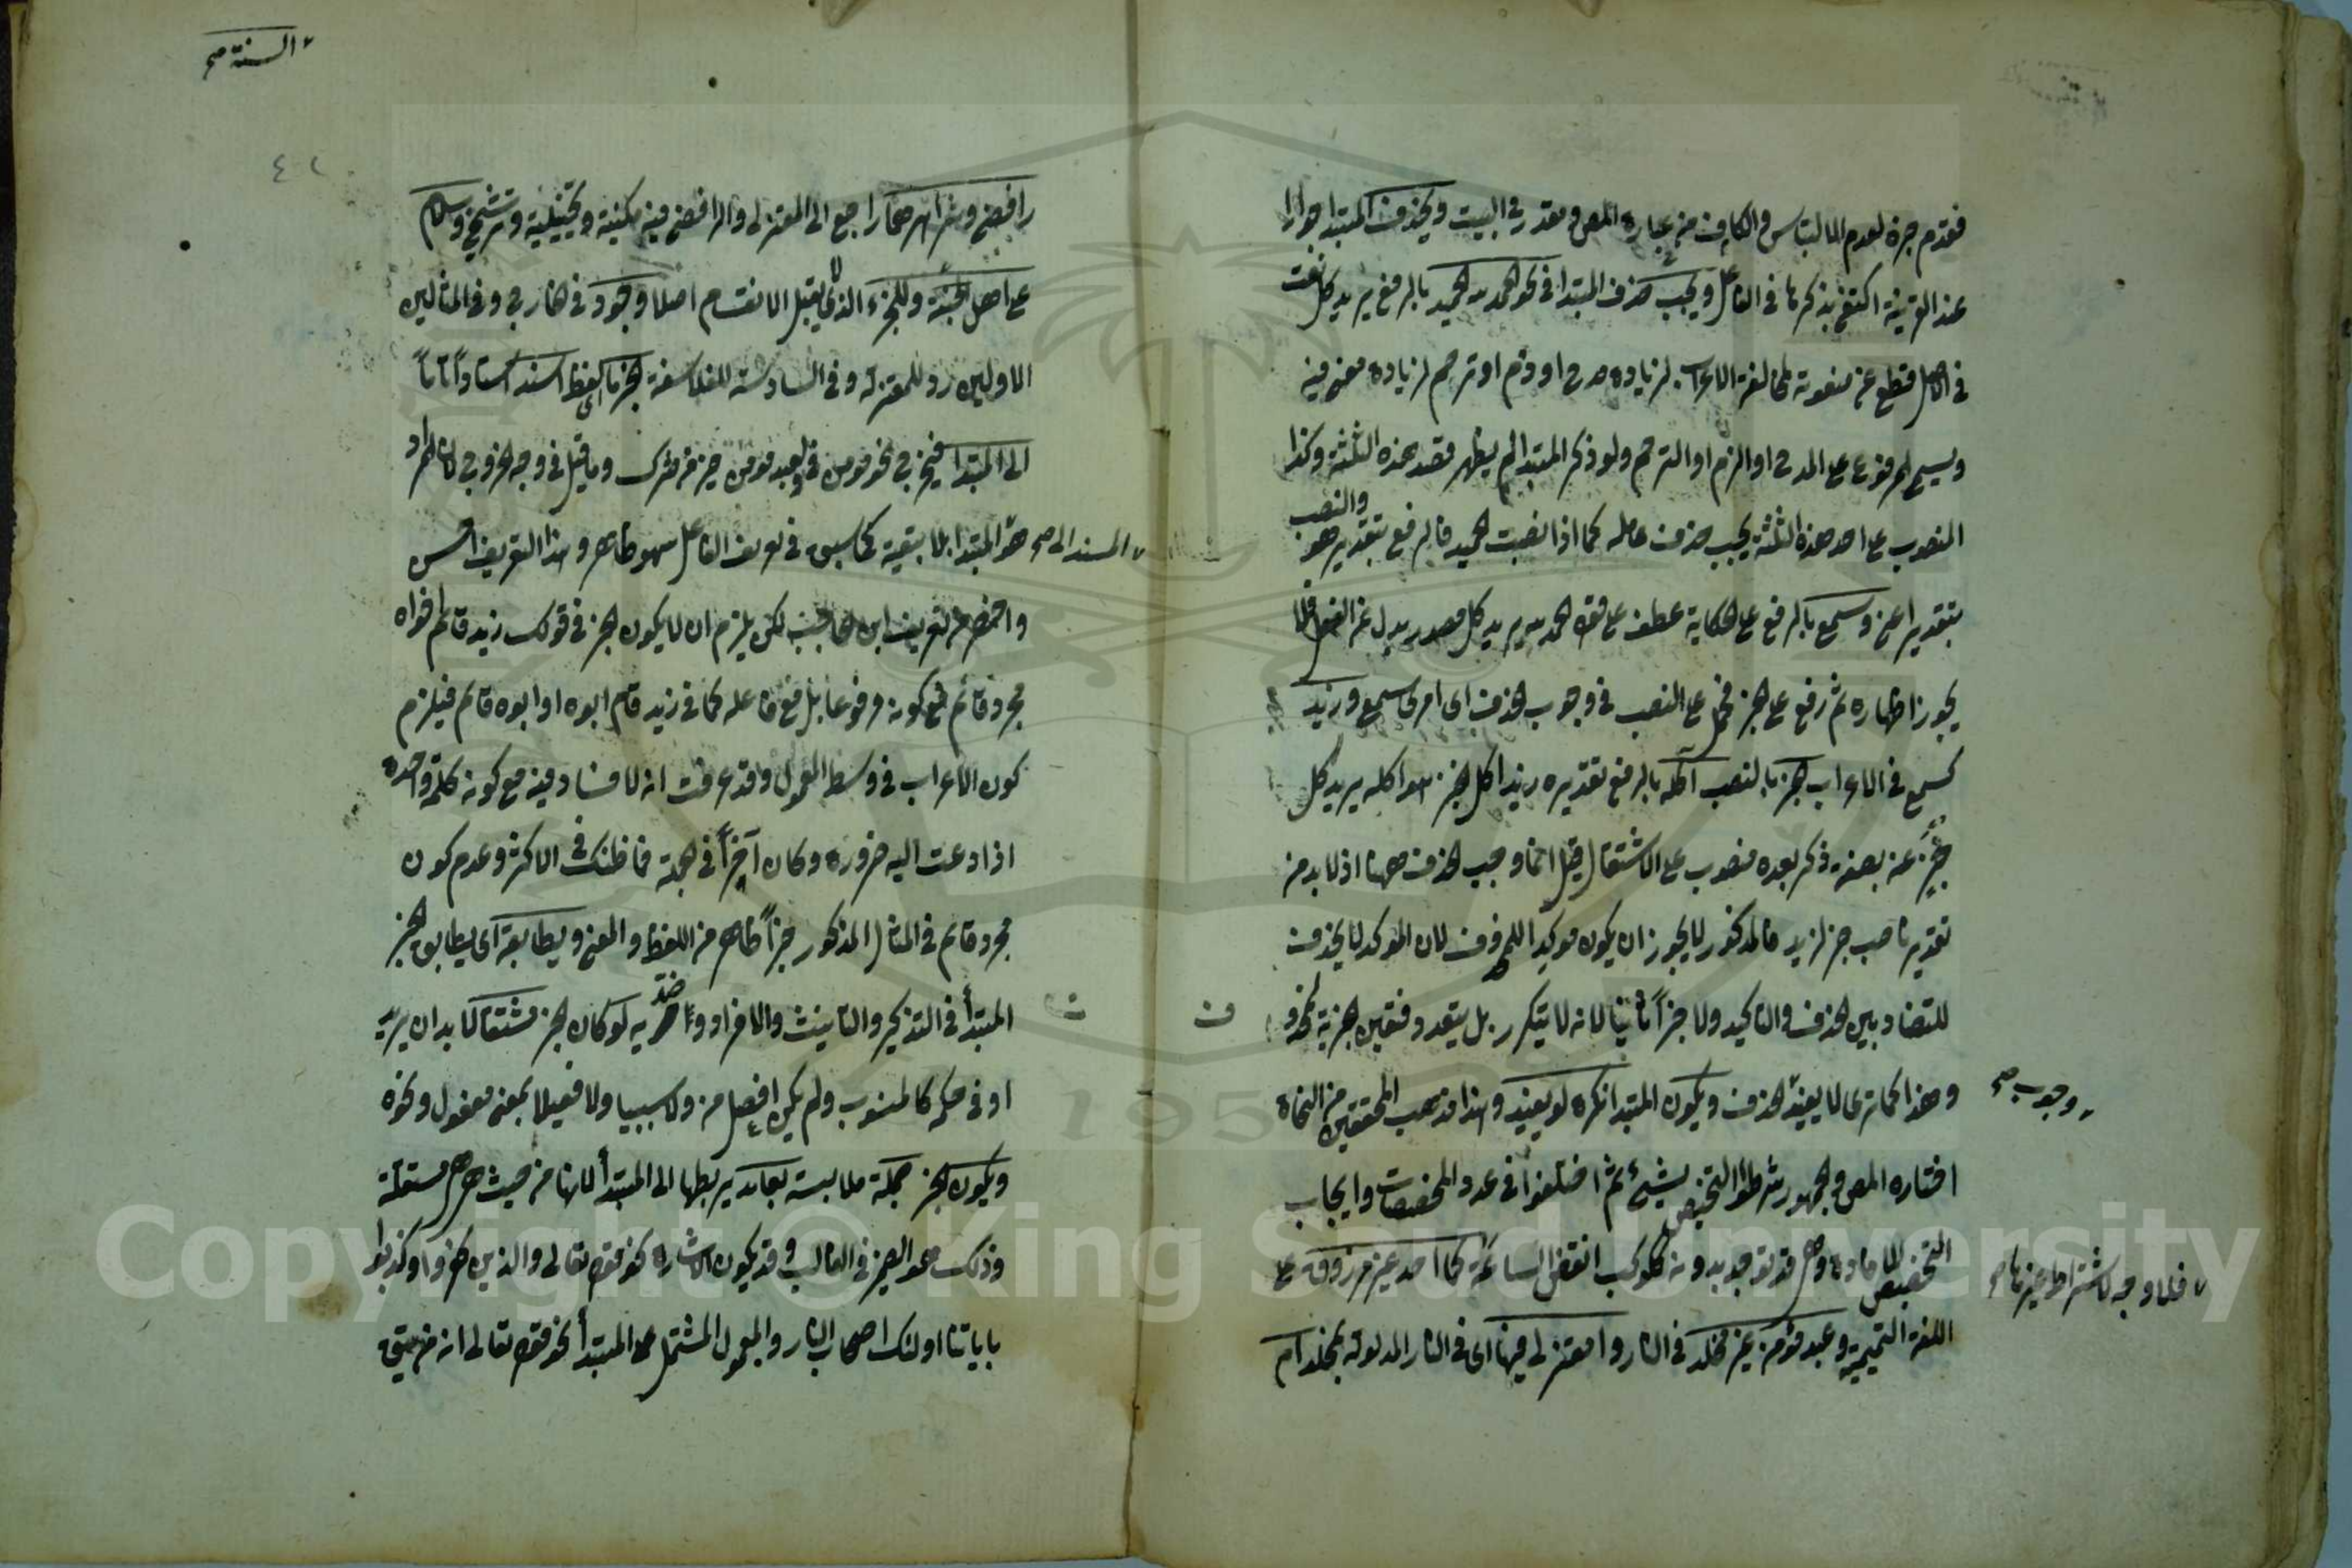 فقدم خبره لعدم الالتباس والكاف من عبارة المص ومقدر في البيت ويحذف المبتدأ جوازا
عند القرينة اكتفى بذكرها في الفاعل ويجب حذف المبتدأ في نحو الحمد لله الحميد بالرفع يريد كل نعت
في الاصل قطع عن منعوته لمخالفة الاعراب لزيادة مدح او ذم او ترحم لزيادة معنى فيه
ويسمى المرفوع على المدح او الذم او الترحم ولو ذكر المبتدأ لم يظهر قصد هذه الثلثة وكذا
المنصوب على احد هذه الثلثة يجب حذف عامله كما اذا نصبت الحميد فالرفع بتقدير هو والنصب
بتقدير اعنى وسمع بالرفع على الحكاية عطف على قوله الحمد لله يريد كل مصدر بدل عن الفعل فلا
يجوز اظهاره ثم رفع على الخبر فحمل على النصب في وجوب الحذف اى امرى سمع وزيد
كسمع في الاعراب الخبز بالنصب آكله بالرفع تقديره زيد آكل الخبز هو آكله يريد كل
خبر عنه بصفة ذكر بعده منصوب على الاشتغال قيل انما وجب الحذف ههنا اذ لا بد من
تقدير ناصب خبر لزيد فالمذكور لا يجوز ان يكون موكدا للمحذوف لان الموكد لا يحذف
للتضاد بين الحذف والتاكيد ولا خبراً ثانيا لانه لا يتكرر بل يتعدد فتعين خبرية
وهذا كما ترى لا يفيد الحذف ويكون المبتدأ نكرة لو يفيد وهذا مذهب المحققين من النحاة
وجوب صح
اختاره المص والجمهور شرطوا التخصيص بشئ ثم اختلفوا في عدد المخصصات وايجاب
التخصيص للافادة وهى قد توجد بدونه ككوكب انقض الساعة كما احد غير مرزوق على
فلا وجه لاشتراط غيرها صح
اللغة التميمية وعبد مؤمن غير مخلد في النار وامعتزلى فيها اى في النار المدلولة بمخلد ام
السنة صح
٤٢
رافضى وشر اهر راجع الى المعتزلى والرافضى فيه مكنية وتخييلية وترشيح وسلام
على اهل الجنة وللجزء الذى لا يقبل الانقسام اصلا وجود في الخارج وفي المثالين
الاولين رد للمعتزلة وفي السادسة للفلاسفة الخبر ما اى لفظ اسند اسناداً تاماً
الى المبتدأ فيخرج نحو مومن في ولعبد مومن خير من مشرك وما قيل في وجه الخروج لان المراد
المسند الى صح هو المبتدأ بلا بقية كما سبق في تعريف الفاعل سهو ظاهر وهذا التعريف احسن
واخصر من تعريف ابن الحاجب لكن يلزم ان لا يكون الخبر في قولك زيد قائم اخواه
مجرد قائم مع كونه مرفوعا بل مع فاعله كما في زيد قام ابوه او ابوه قائم فيلزم
كون الاعراب في وسط المعمول وقد عرفت انه لا فساد فيه مع كونه كلمة واحدة
اذا دعت اليه ضرورة وكان آخراً في الجملة فما ظنك في الاكثر وعدم كون
مجرد قائم في المثال المذكور خبراً ظاهر من اللفظ والمعنى ويطابقه اى يطابق الخبر
المبتدأ في التذكير والتانيث والافراد وضده لو كان الخبر مشتقا لا بد ان يريد
او في حكمه كالمنسوب ولم يكن افعل من ولا سببيا ولا فعيلا بمعنى مفعول ونحوه
ويكون الخبر جملة ملابسة بعائد يربطها الى المبتدأ لانها من حيث هى هى مستقلة
وذلك هو الضمير في الغالب وقد يكون الاشارة نحو قوله تعالى والذين كفروا وكذبوا
باياتنا اولئك اصحاب النار والمعمول المشتمل على المبتدأ نحو قوله تعالى انه من يتق
Copyright © King Saud University
195